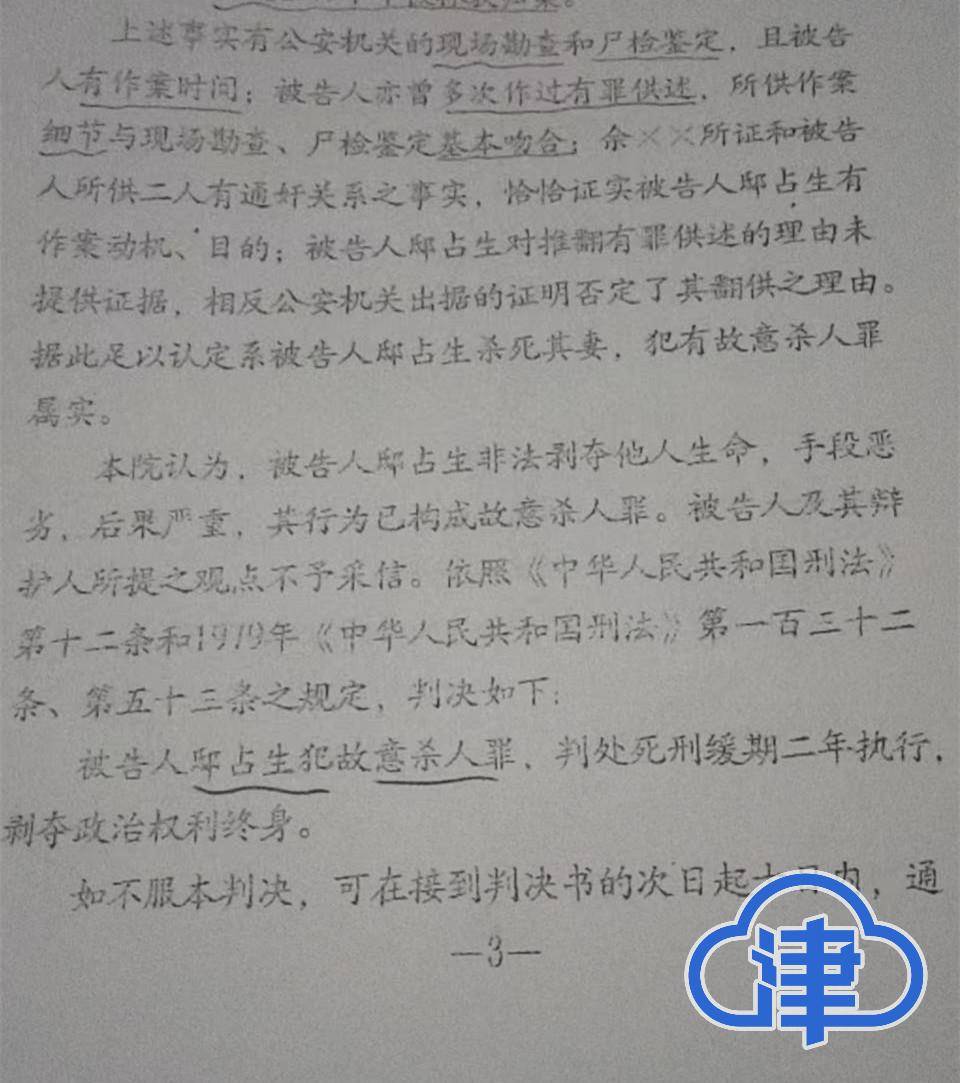 归案。
上述事实有公安机关的现场勘查和尸检鉴定，且被告
人有作案时间；被告人亦曾多次作过有罪供述，所供作案
细节与现场勘查、尸检鉴定基本吻合；余××所证和被告
人所供二人有通奸关系之事实，恰恰证实被告人邸占生有
作案动机、目的；被告人邸占生对推翻有罪供述的理由未
提供证据，相反公安机关出据的证明否定了其翻供之理由。
据此足以认定系被告人邸占生杀死其妻，犯有故意杀人罪
属实。
本院认为，被告人邸占生非法剥夺他人生命，手段恶
劣，后果严重，其行为已构成故意杀人罪。被告人及其辩
护人所提之观点不予采信。依照《中华人民共和国刑法》
第十二条和1979年《中华人民共和国刑法》第一百三十二
条、第五十三条之规定，判决如下：
被告人邸占生犯故意杀人罪，判处死刑缓期二年执行，
剥夺政治权利终身。
如不服本判决，可在接到判决书的次日起十日内，通
—3—
津